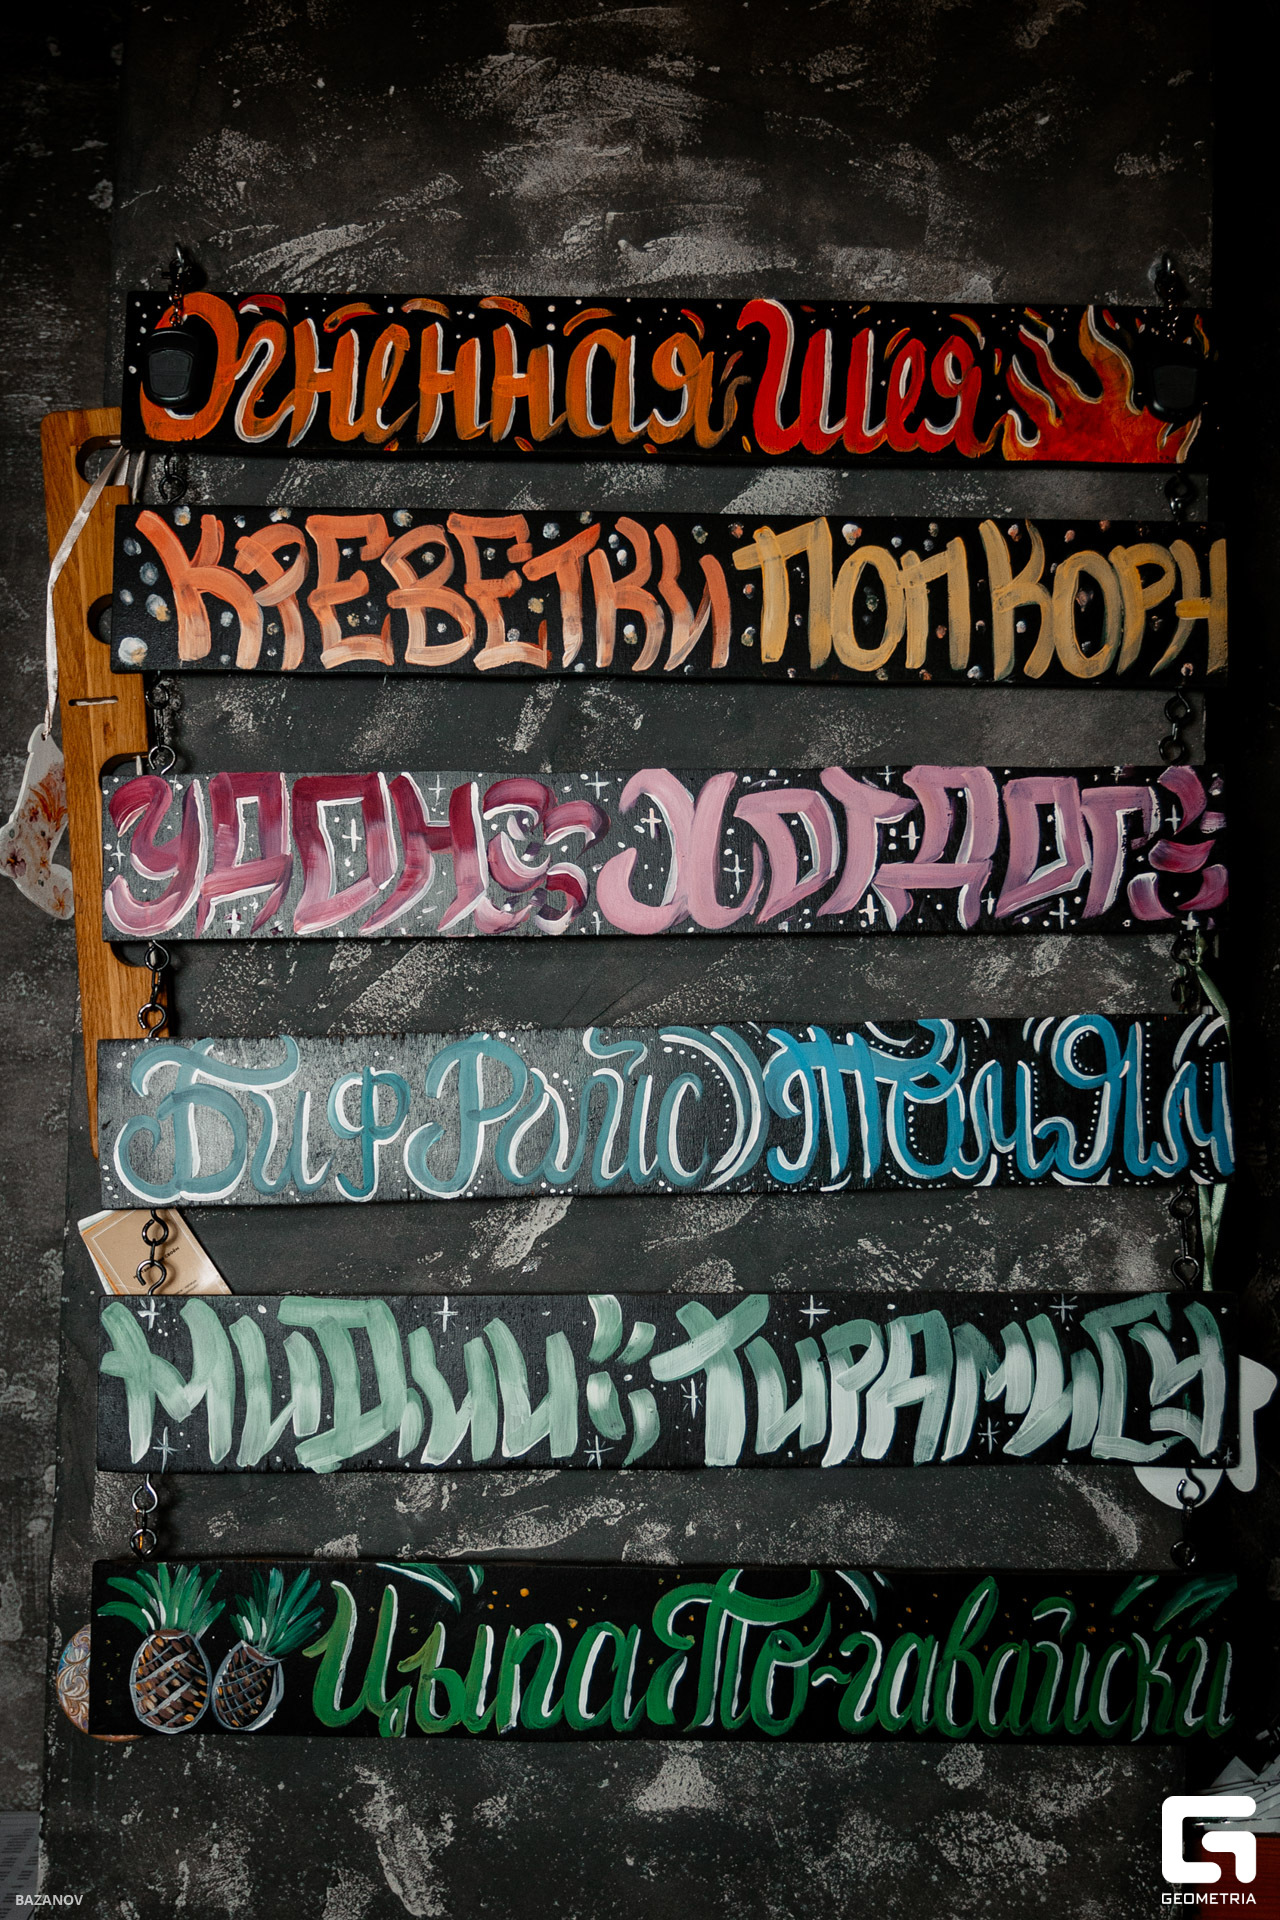 Огненная Шея
КРЕВЕТКИ ПОПКОРН
УДОН ХОТДОГ
Биф Райс Том Ям
МИДИИ ТИРАМИСУ
Цыпа По-гавайски
BAZANOV
GEOMETRIA